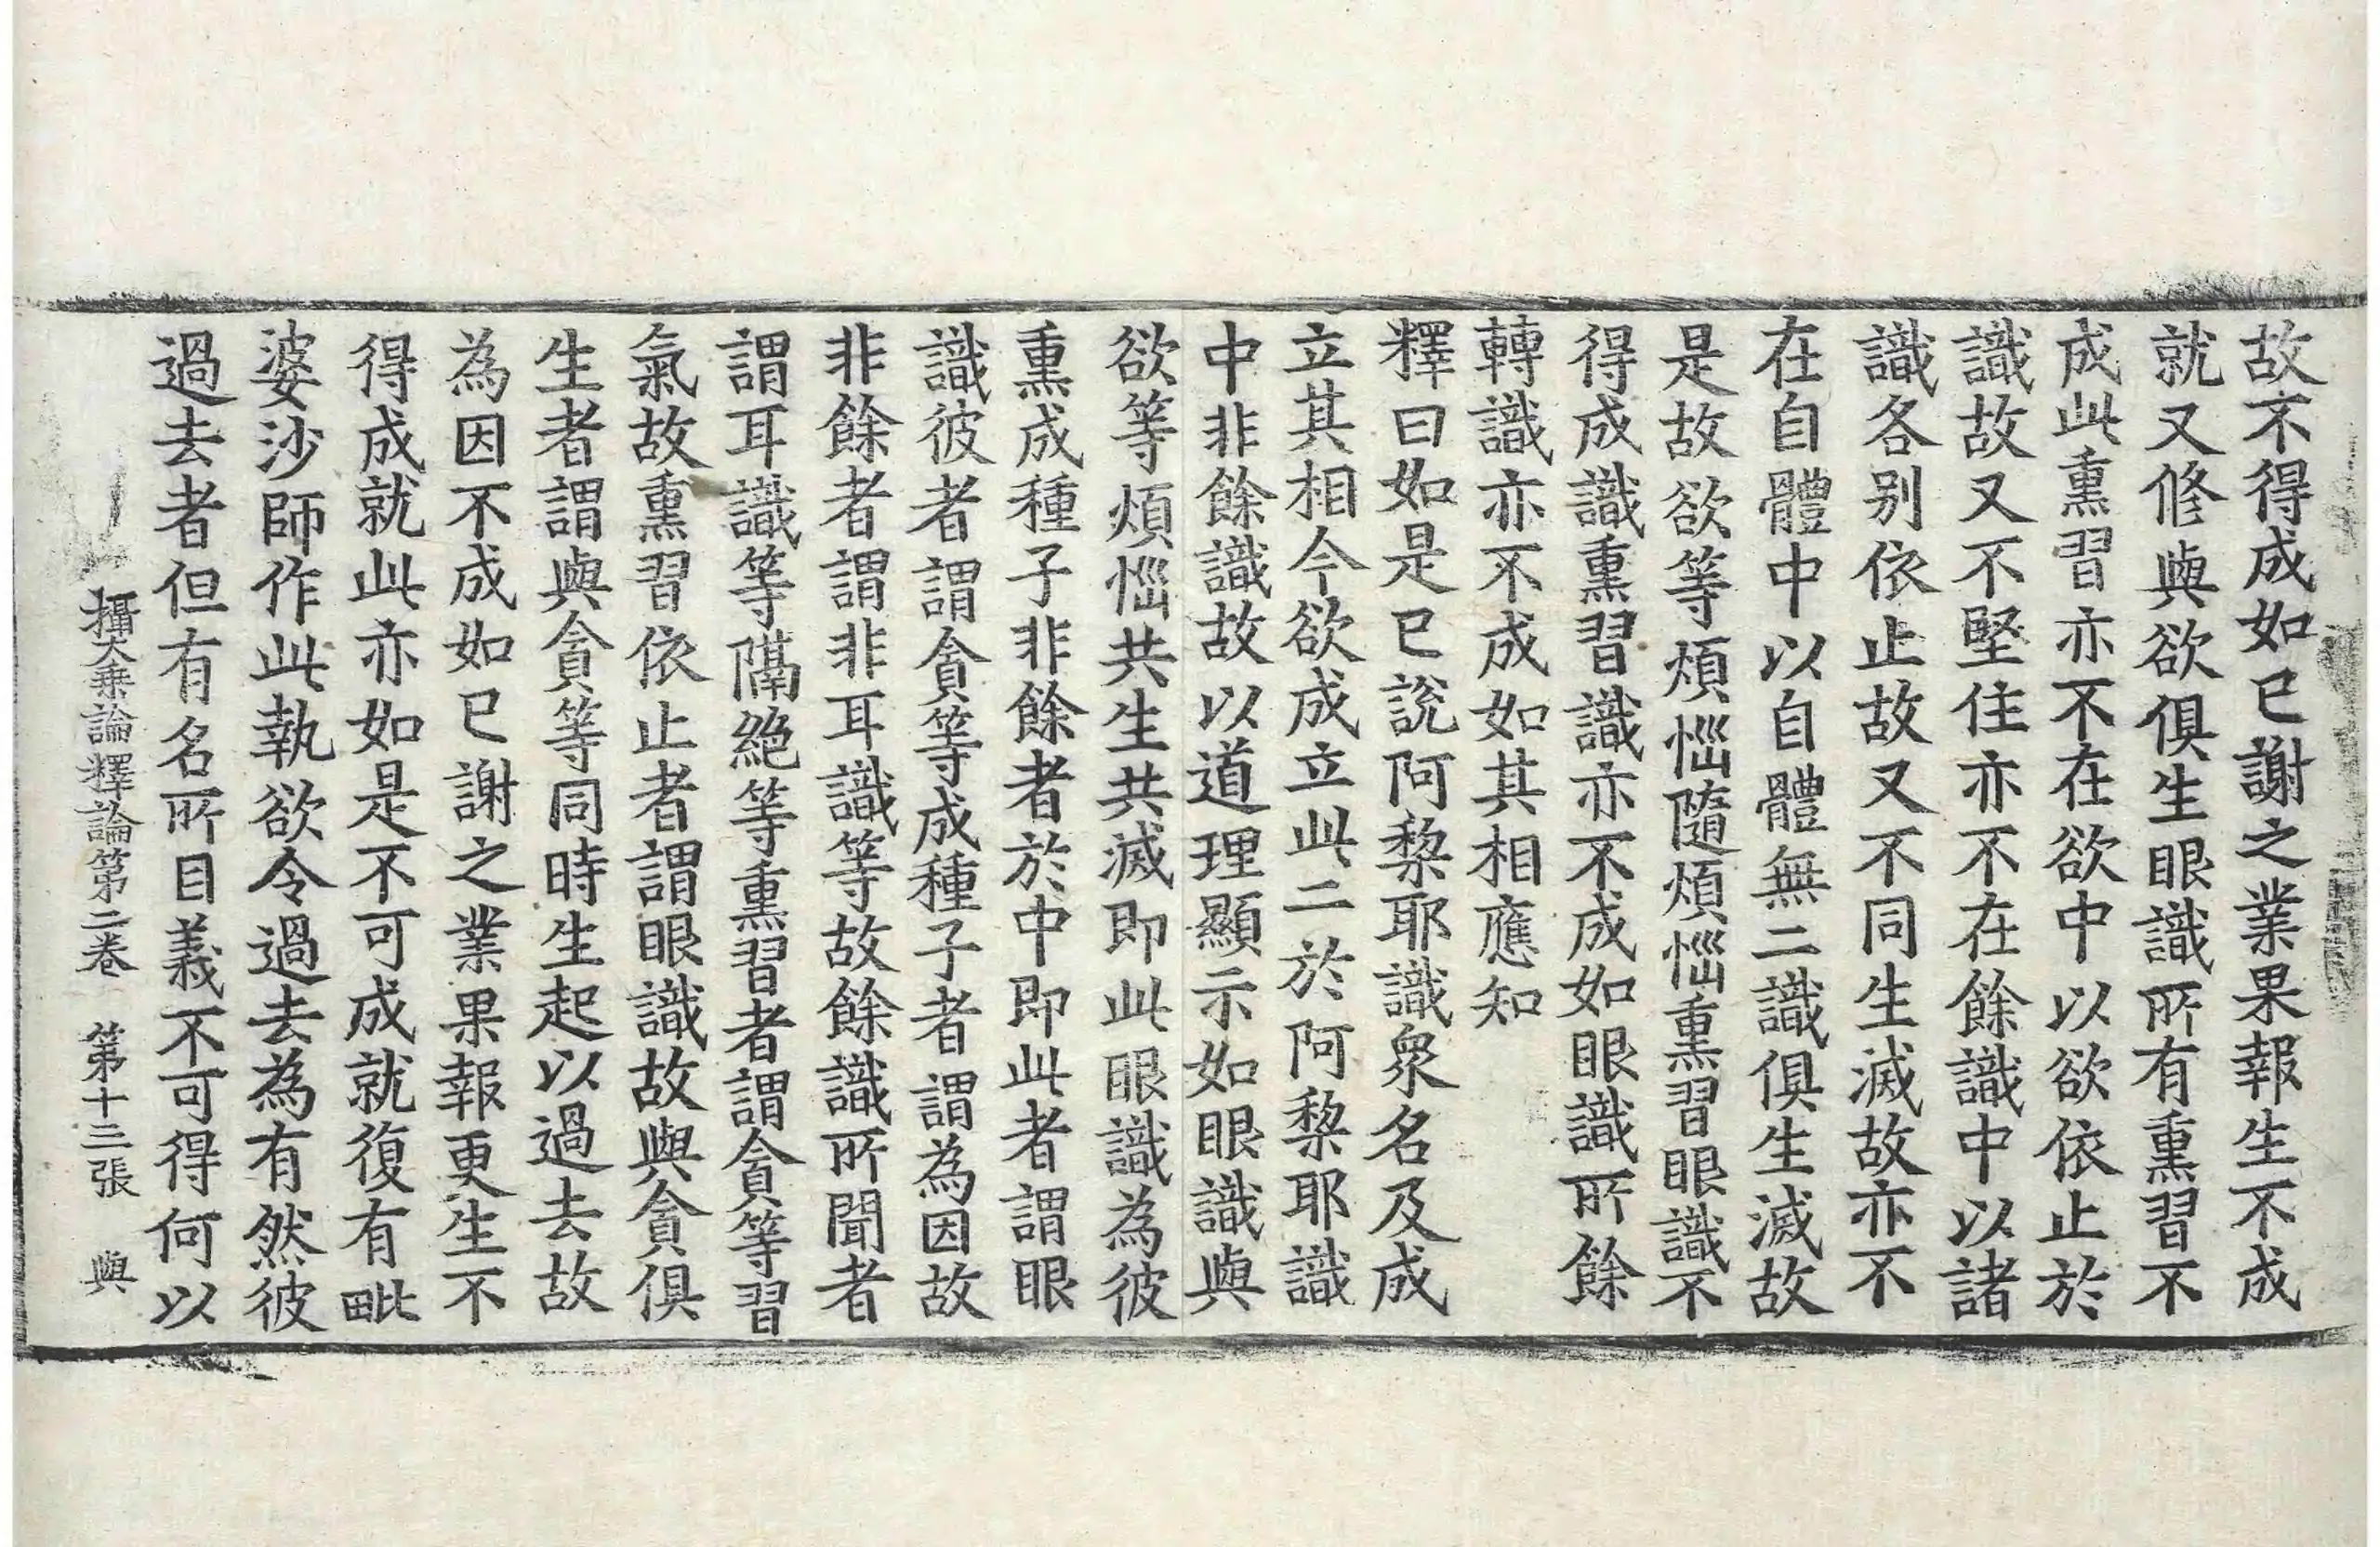 故不得成如已謝之業果報生不成
就又修與欲俱生眼識所有熏習不
成此熏習亦不在欲中以欲依止於
識故又不堅住亦不在餘識中以諸
識各別依止故又不同生滅故亦不
在自體中以自體無二識俱生滅故
是故欲等煩惱隨煩惱熏習眼識不
得成識熏習識亦不成如眼識所餘
轉識亦不成如其相應知
釋曰如是已說阿黎耶識衆名及成
立其相今欲成立此二於阿黎耶識
中非餘識故以道理顯示如眼識與
欲等煩惱共生共滅即此眼識為彼
熏成種子非餘者於中即此者謂眼
識彼者謂貪等成種子者謂為因故
非餘者謂非耳識等故餘識所聞者
謂耳識等隔絕等熏習者謂貪等習
氣故熏習依止者謂眼識故與貪俱
生者謂與貪等同時生起以過去故
為因不成如已謝之業果報更生不
得成就此亦如是不可成就復有毗
婆沙師作此執欲令過去為有然彼
過去者但有名所目義不可得何以
攝大乘論釋論第二卷 第十三張 與